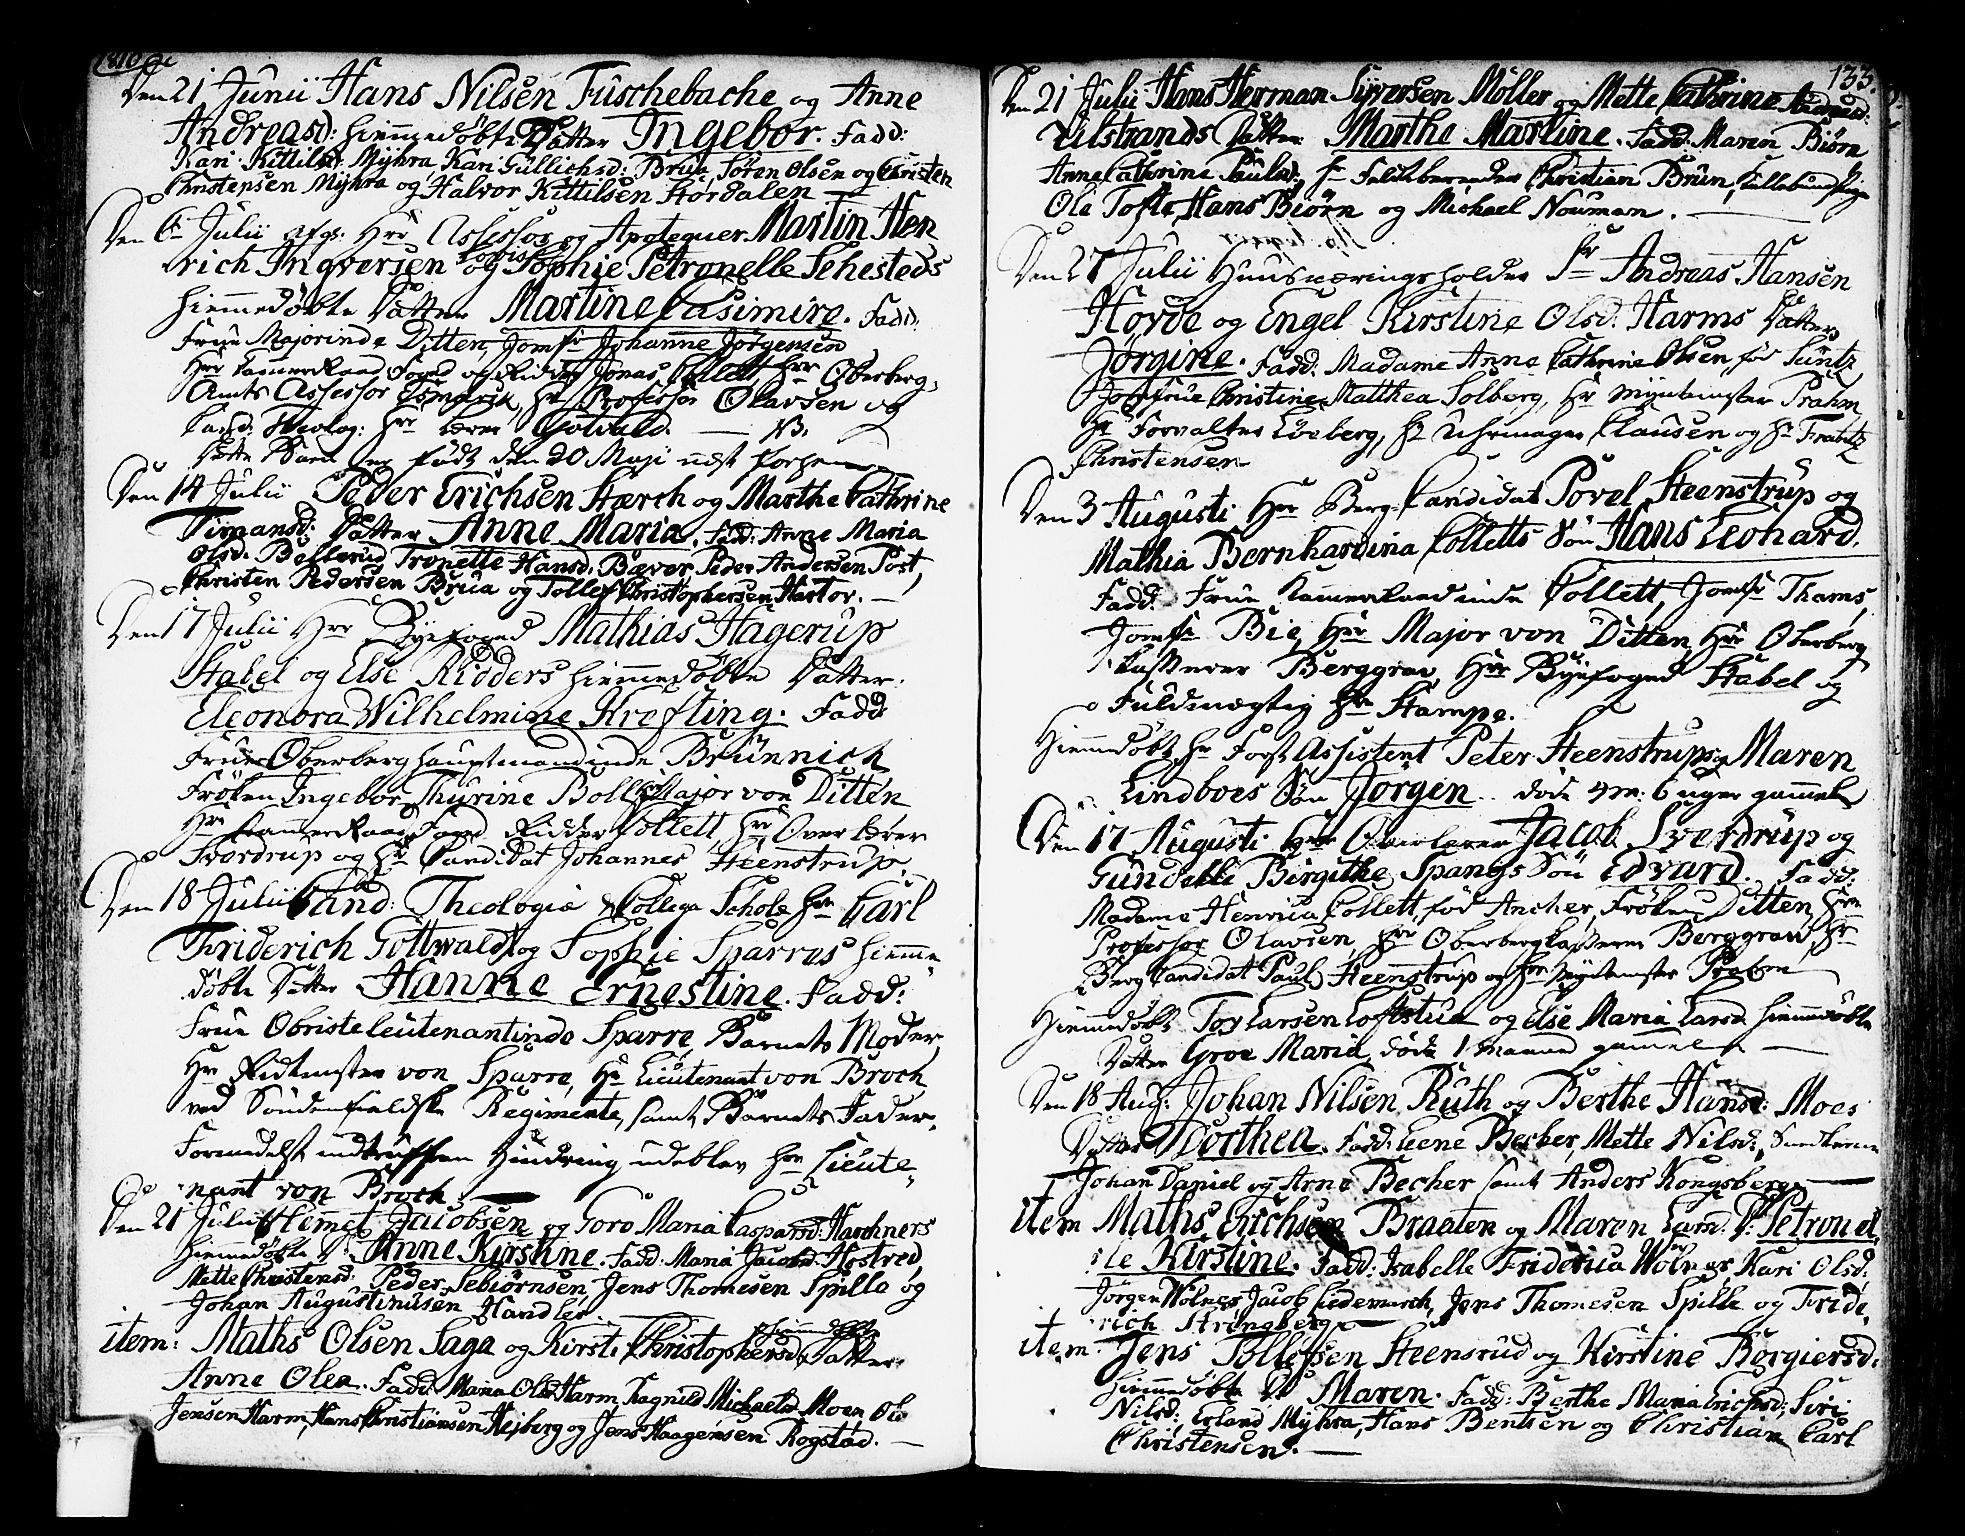 1810
Den 21 Junii Hans Nilsen Fuschebache og Anne
Andreasd: hiemmedøbte Datter Ingebor. Fadd:
Kari Kittilsd: Myhra, Kari Gullichsd: Brua, Sören Olsen og Christen
Christensen Myhra og Halvor Kittilsen Stordalen
Den 6 Julii afgr: Hrr Assessor og Apotequer Martin Hen
rich Ingversen og Lovise Sophie Petronelle Sehesteds
hiemmedøbte Datter Martine Casimire. Fadd:
Frue Majorinde Ditten, Jomfr Johanne Jörgensen
Hrr Cammerraad Foged og Ridder Jonas Collett, Hrr Oberberg,
Amts Assessor Esmarck, Hr Professor Olavsen og
Cand: Theolog: Hrr Lærer Gotvald. — NB.
Dette Barn er født den 20 Maji næst
Den 14 Julii Peder Erichsen Stærch og Marthe Cathrine
Timansd: Datter Anne Maria. Fad: Anne Maria
Olsd: Bellerud, Tronette Hansd: Bæver, Peder Andersen Post,
Christen Pedersen Brua og Tollef Christophersen Hartor. —
Den 17 Julii Hrr Byefoged Mathias Hagerup
Stabel og Else Ridders hiemmedøbte Datter
Eleonora Wilhelmine Krefting. Fadd
Frue Oberberghauptmandinde Brünnich
Fröken Ingebor Thyrine Boll, Major von Ditten
Hr CammerRaad Foged Ridder Collett, Hr Overlærer
Sverdrup og Hr Candidat Johannes Steenstrup.
Den 18 Julii Cand: Theologiæ & Collega Scholæ Hrr Carl
Friderich Gottwaldt og Sophie Sparres hiemme
døbte Datter Hanne Ernestine. Fadd:
Frue Obristeleutenantinde Sparre, Barnets Moder
Hr Ridtmester von Sparre, Hr Lieutenant von Broch
ved Söndenfieldske Regimente, samt Barnets Fader.
Formedelst indtruffen Hindring udeblev Hrr Lieute-
nant von Broch.
Den 21 Julii Clemmet Jacobsen og Goro Maria Caspersd: Karchners
hiemmedøbte D: Anne Kirstine. Fadd: Maria Jacobsd: Hostved,
Mette Christensd: Peder Sebiörnsen, Jens Thomesen Spilla og
Johan Augustinusen Handler.
item: Maths Olsen Saga og Kirsti Christophersd: hiemmedøbte Datter
Anne Olea. Fadd: Maria Olsd Harm, Ragnild Michaelsd Moen, Ole
Jensen Harm, Hans Christiansen Hejberg og Jens Haagensen Rogstad. —
133.
Den 21 Julii Hans Herman Syversen Möller og Mette Cathrine Andersd:
Lilstrands Datter Marthe Martine. Fadd: Maren Biörn
Anne Cathrine Paulsd: Hr Feldtbereder Christian Brun,
Ole Tofte, Hans Biörn og Michael Nouman. —
Den 27 Julii Huusnæringsholder Sr Andreas Hansen
Hovde og Engel Kirstine Olsd: Harms Datter
Jörgine. Fadd: Madame Anne Cathrine Olsen, fød Suntz,
Jomfrue Christine Matthea Solberg, Hr Myntmester Prahm
Hr Forvalter Löeberg, Hr Uhrmager Clausen og Hr Frantz
Christensen
Den 3 Augusti Hrr Berg-Candidat Povel Steenstrup og
Mathia Bernhardina Colletts Sön Hans Leonhard.
Fadd: Frue Kamerraadinde Collett, Jomfr Thams,
Jomfr Bie, Hrr Major von Ditten, Hrr Oberberg
Casserer Berggrav, Hrr Byefoged Stabel og
Fuldmægtig Hr Stampe.
Hiemmedøbt Hr Forst Assistent Peter Steenstrups og Maren
Lindboes Sön Jörgen. døde 6 uger gammel
Den 17 Augusti Hrr Overlærer Jacob Sverdrup og
Gundelle Birgithe Spangs Sön Edvard. Fadd:
Madame Henrica Collett, fød Ancher, Fröken Ditten, Hrr
Professor Olavsen, Hrr Oberbergkasserer Berggrav, Hr
Berg Candidat Paul Steenstrup og Hr Myntmester Prahm
Hiemmedøbt Tor Larsen Loftstua og Else Maria Larsd hiemmedøbte
Datter Groe Maria, døde 1 Maaned gammel —
Den 18 Aug: Johan Nilsen Ruth og Berthe Hansd: Moes
Datter Dorthea. Fadd: Lene Becher, Mette Nilsd:
Johan Daniel og Arne Becher samt Anders Kongsberg. —
item Maths Erichsen Braaten og Maren Larsd. D: Petronel,
le Kirstine. Fadd: Isabelle Friderica Wölner, Kari Olsd:
Jörgen Wölner, Jacob Liedemarch, Jens Thomesen Spille og Fride,
rich Stringberg —
item. Jens Tollefsen Steensrud og Kirstine Börgiersd:
hiemmedøbte D: Maren. Fadd: Berthe Maria Erichsd, Siri
Nilsd: Erland Myhra, Hans Bentsen og Christian Carl
Christensen. —